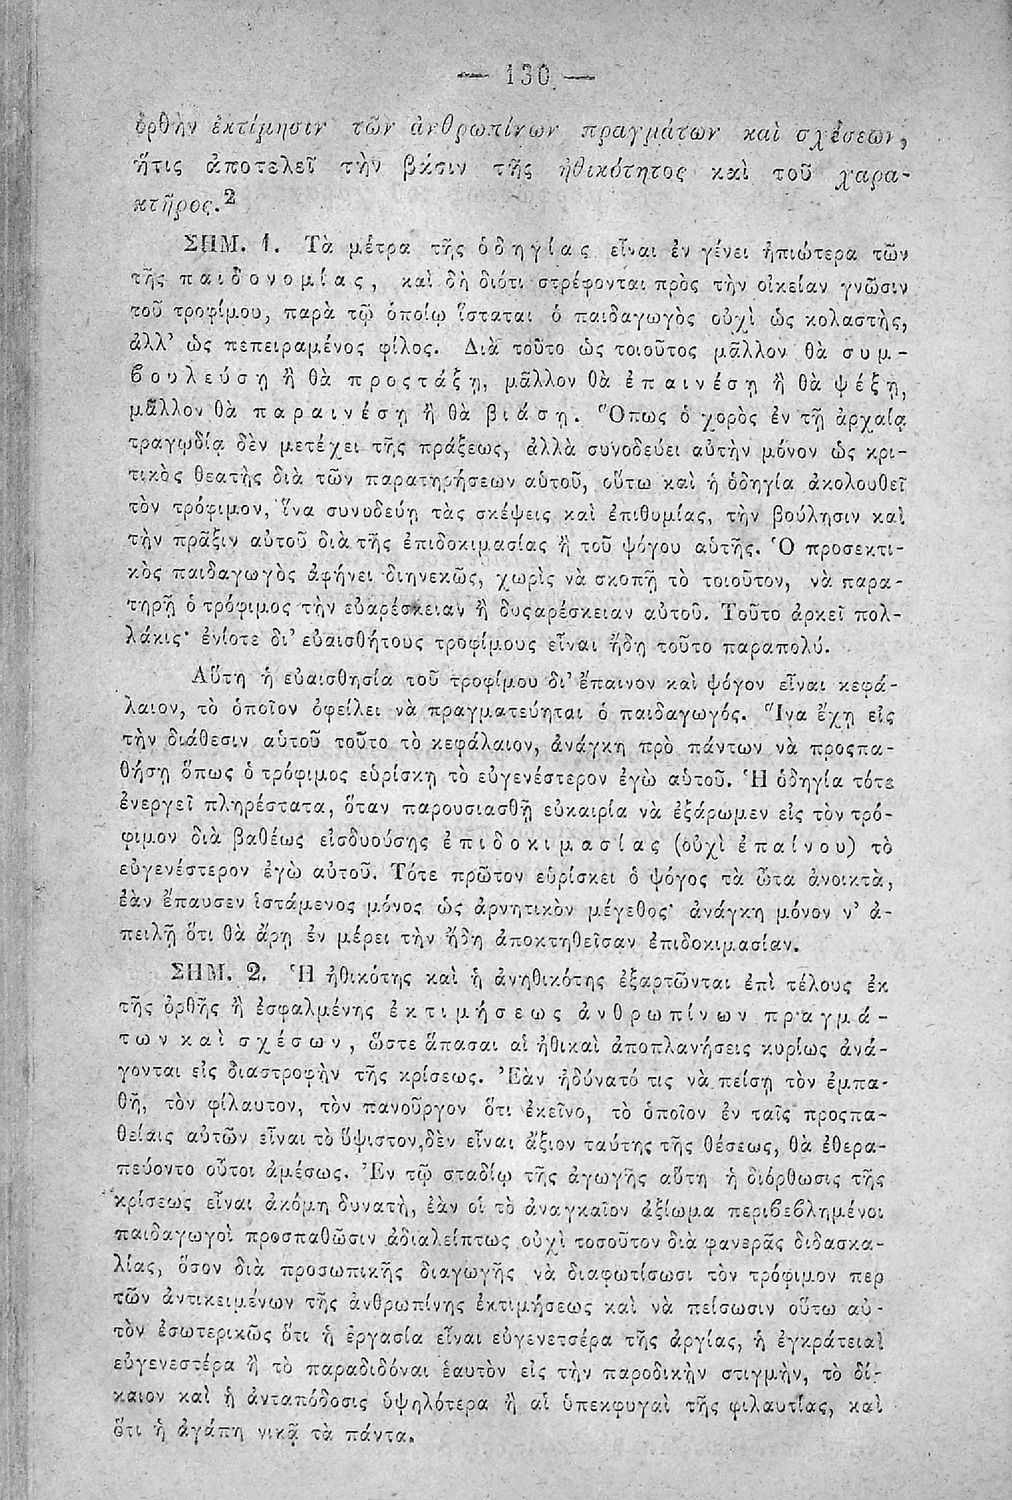 — 130 —
ὀρθὴν ἐκτίμησιν τῶν ἀνθρωπίνων πραγμάτων καὶ σχέσεων,
ἥτις ἀποτελεῖ τὴν βάσιν τῆς ἠθικότητος καὶ τοῦ χαρα-
κτῆρος.²
ΣΗΜ. 1. Τὰ μέτρα τῆς ὁδηγίας εἶναι ἐν γένει ἠπιώτερα τῶν
τῆς παιδονομίας, καὶ δὴ διότι στρέφονται πρὸς τὴν οἰκείαν γνῶσιν
τοῦ τροφίμου, παρὰ τῷ ὁποίῳ ἵσταται ὁ παιδαγωγὸς οὐχὶ ὡς κολαστὴς,
ἀλλ' ὡς πεπειραμένος φίλος. Διὰ τοῦτο ὡς τοιοῦτος μᾶλλον θὰ συμ-
βουλεύσῃ ἢ θὰ προστάξῃ, μᾶλλον θὰ ἐπαινέσῃ ἢ θὰ ψέξῃ,
μᾶλλον θὰ παραινέσῃ ἢ θὰ βιάσῃ. Ὅπως ὁ χορὸς ἐν τῇ ἀρχαίᾳ
τραγῳδίᾳ δὲν μετέχει τῆς πράξεως, ἀλλὰ συνοδεύει αὐτὴν μόνον ὡς κρι-
τικὸς θεατὴς διὰ τῶν παρατηρήσεων αὑτοῦ, οὕτω καὶ ἡ ὁδηγία ἀκολουθεῖ
τὸν τρόφιμον, ἵνα συνοδεύῃ τὰς σκέψεις καὶ ἐπιθυμίας, τὴν βούλησιν καὶ
τὴν πρᾶξιν αὐτοῦ διὰ τῆς ἐπιδοκιμασίας ἢ τοῦ ψόγου αὑτῆς. Ὁ προσεκτι-
κὸς παιδαγωγὸς ἀφήνει διηνεκῶς, χωρὶς νὰ σκοπῇ τὸ τοιοῦτον, νὰ παρα-
τηρῇ ὁ τρόφιμος τὴν εὐαρέσκειαν ἢ δυςαρέσκειαν αὐτοῦ. Τοῦτο ἀρκεῖ πολ-
λάκις· ἐνίοτε δι' εὐαισθήτους τροφίμους εἶναι ἤδη τοῦτο παραπολύ.
Αὕτη ἡ εὐαισθησία τοῦ τροφίμου δι' ἔπαινον καὶ ψόγον εἶναι κεφά-
λαιον, τὸ ὁποῖον ὀφείλει νὰ πραγματεύηται ὁ παιδαγωγός. Ἵνα ἔχῃ εἰς
τὴν διάθεσιν αὑτοῦ τοῦτο τὸ κεφάλαιον, ἀνάγκη πρὸ πάντων νὰ προςπα-
θήσῃ ὅπως ὁ τρόφιμος εὑρίσκῃ τὸ εὐγενέστερον ἐγὼ αὑτοῦ. Ἡ ὁδηγία τότε
ἐνεργεῖ πληρέστατα, ὅταν παρουσιασθῇ εὐκαιρία νὰ ἐξάρωμεν εἰς τὸν τρό-
φιμον διὰ βαθέως εἰσδυούσης ἐπιδοκιμασίας (οὐχὶ ἐπαίνου) τὸ
εὐγενέστερον ἐγὼ αὐτοῦ. Τότε πρῶτον εὑρίσκει ὁ ψόγος τὰ ὦτα ἀνοικτὰ,
ἐὰν ἔπαυσεν ἱστάμενος μόνος ὡς ἀρνητικὸν μέγεθος· ἀνάγκη μόνον ν' ἀ-
πειλῇ ὅτι θὰ ἄρῃ ἐν μέρει τὴν ἤδη ἀποκτηθεῖσαν ἐπιδοκιμασίαν.
ΣΗΜ. 2. Ἡ ἠθικότης καὶ ἡ ἀνηθικότης ἐξαρτῶνται ἐπὶ τέλους ἐκ
τῆς ὀρθῆς ἢ ἐσφαλμένης ἐκτιμήσεως ἀνθρωπίνων πραγμά-
των καὶ σχέσων, ὥστε ἅπασαι αἱ ἠθικαὶ ἀποπλανήσεις κυρίως ἀνά-
γονται εἰς διαστροφὴν τῆς κρίσεως. Ἐὰν ἠδύνατό τις νὰ πείσῃ τὸν ἐμπα-
θῆ, τὸν φίλαυτον, τὸν πανοῦργον ὅτι ἐκεῖνο, τὸ ὁποῖον ἐν ταῖς προςπα-
θείαις αὐτῶν εἶναι τὸ ὕψιστον, δὲν εἶναι ἄξιον ταύτης τῆς θέσεως, θὰ ἐθερα-
πεύοντο οὗτοι ἀμέσως. Ἐν τῷ σταδίῳ τῆς ἀγωγῆς αὕτη ἡ διόρθωσις τῆς
κρίσεως εἶναι ἀκόμη δυνατὴ, ἐὰν οἱ τὸ ἀναγκαῖον ἀξίωμα περιβεβλημένοι
παιδαγωγοὶ προσπαθῶσιν ἀδιαλείπτως οὐχὶ τοσοῦτον διὰ φανερᾶς διδασκα-
λίας, ὅσον διὰ προσωπικῆς διαγωγῆς νὰ διαφωτίσωσι τὸν τρόφιμον περ
τῶν ἀντικειμένων τῆς ἀνθρωπίνης ἐκτιμήσεως καὶ νὰ πείσωσιν οὕτω αὐ-
τὸν ἐσωτερικῶς ὅτι ἡ ἐργασία εἶναι εὐγενετσέρα τῆς ἀργίας, ἡ ἐγκράτειαὶ
εὐγενεστέρα ἢ τὸ παραδιδόναι ἑαυτὸν εἰς τὴν παροδικὴν στιγμὴν, τὸ δί-
καιον καὶ ἡ ἀνταπόδοσις ὑψηλότερα ἢ αἱ ὑπεκφυγαὶ τῆς φιλαυτίας, καὶ
ὅτι ἡ ἀγάπη νικᾷ τὰ πάντα.